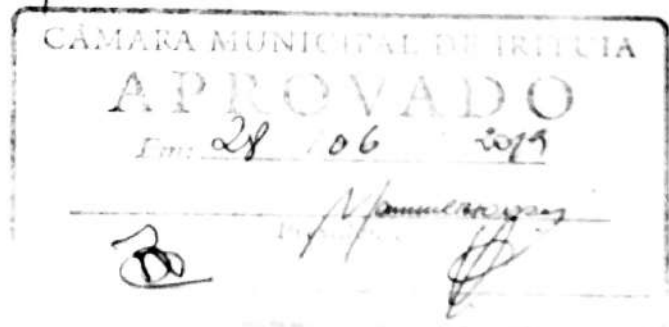 CÂMARA MUNICIPAL DE IRITUIA
APROVADO
Em: 28 / 06 2019